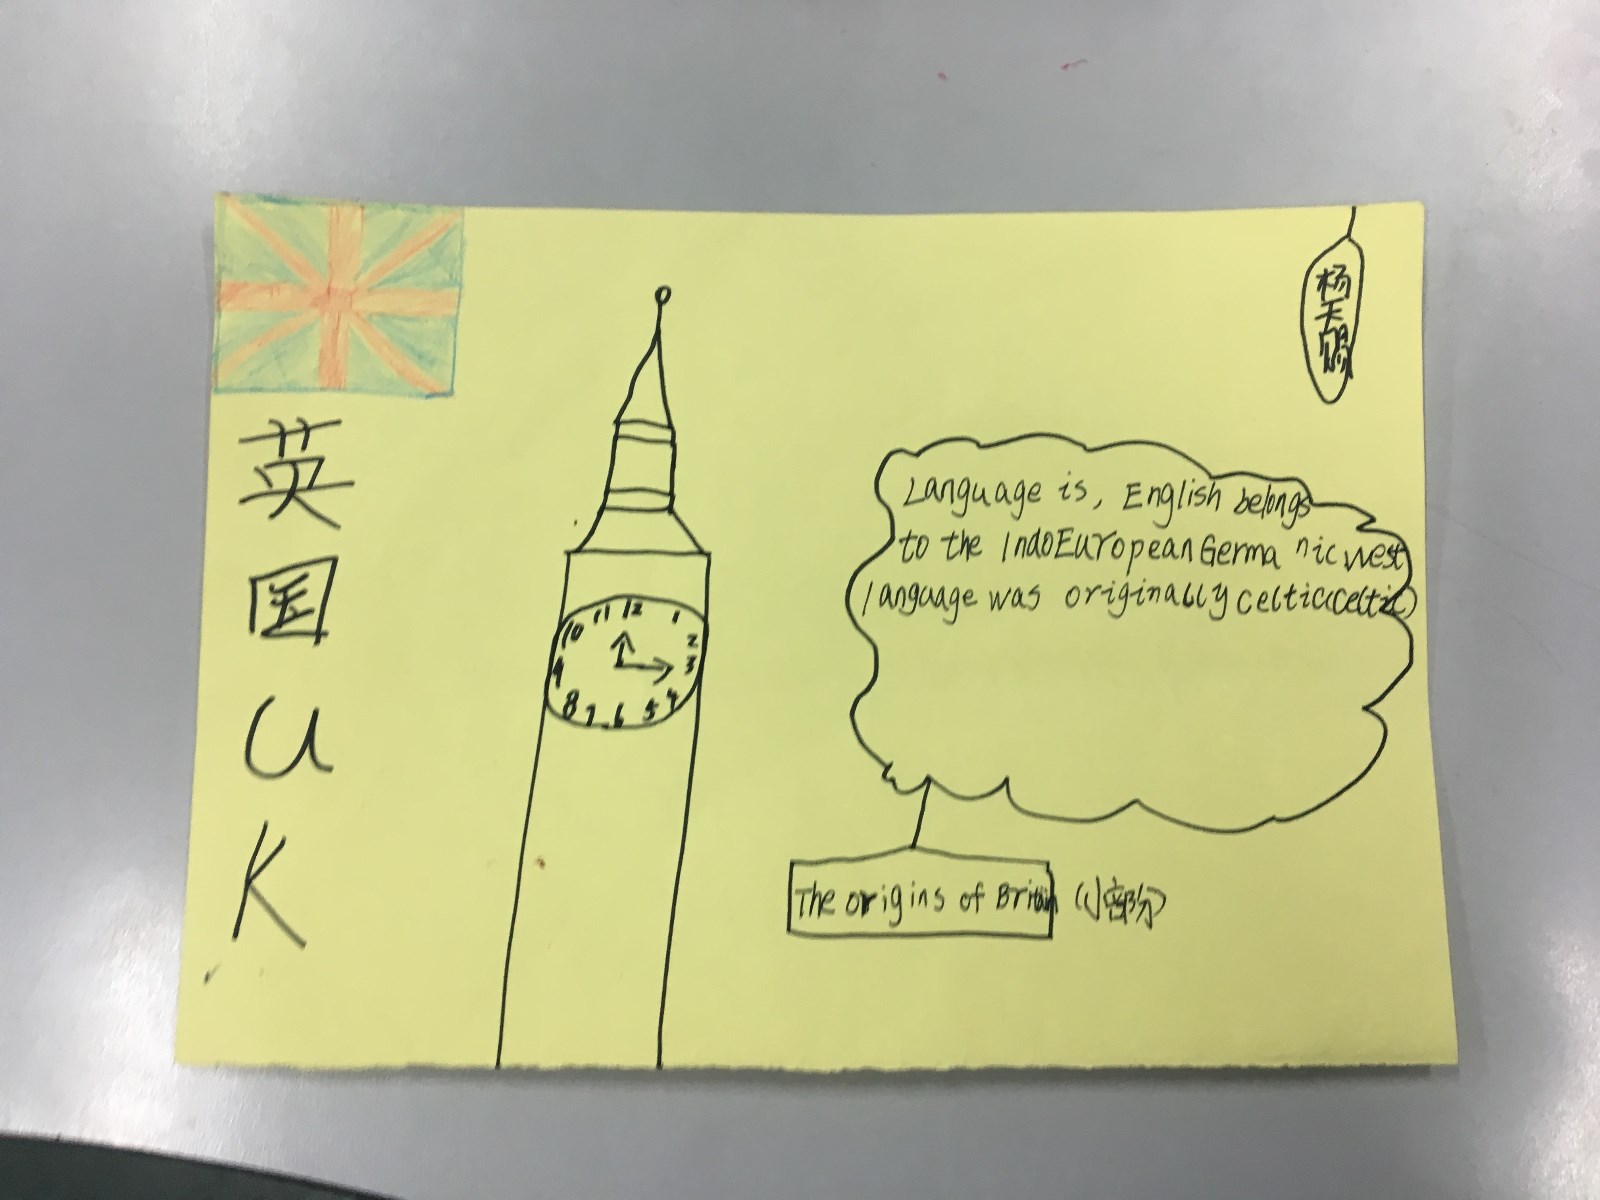 英
国
U
K
杨
天
赐
11 12 1
10 2
9 3
8 7 6 5 4
Language is, English belongs
to the IndoEuropeanGerma nic west
language was originally celtic(celtic)
The origins of Britain (小部分)